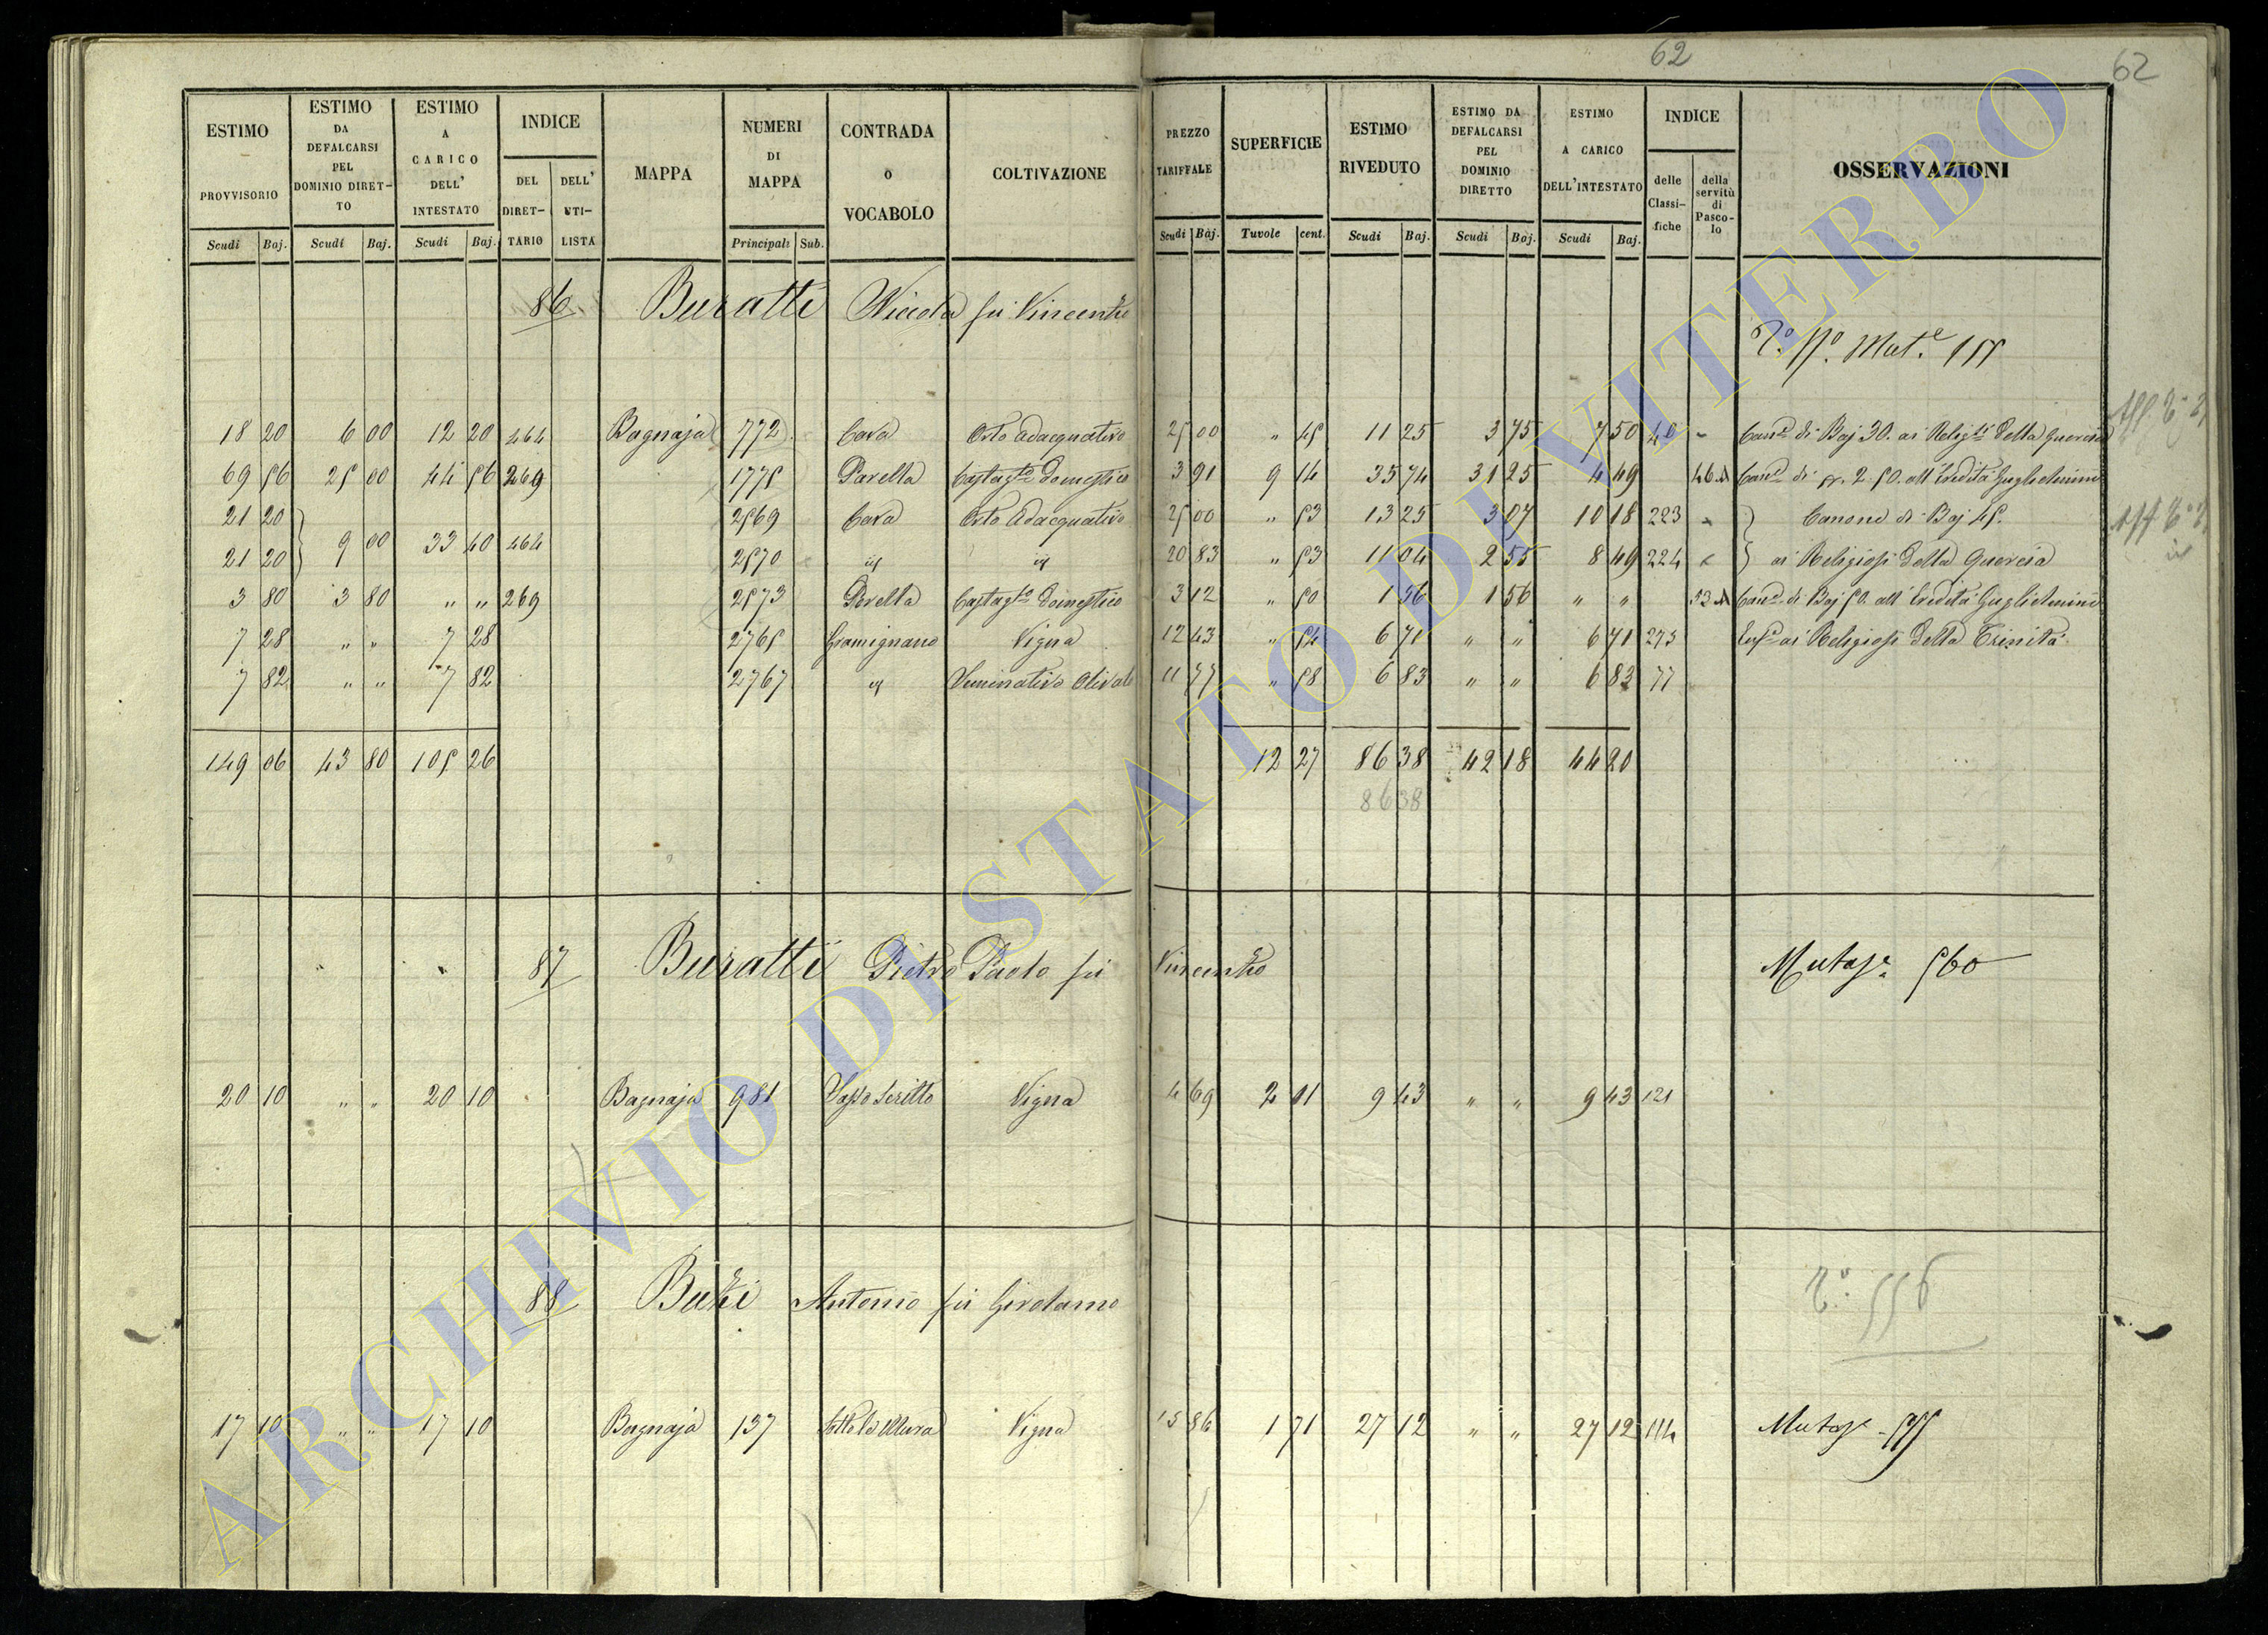 62
62
ESTIMO PROVVISORIO
ESTIMO DA DEFALCARSI PEL DOMINIO DIRETTO
ESTIMO A CARICO DELL' INTESTATO
INDICE
DEL DIRETTARIO
DELL' UTILISTA
MAPPA
NUMERI DI MAPPA
CONTRADA O VOCABOLO
COLTIVAZIONE
PREZZO TARIFFALE
SUPERFICIE
ESTIMO RIVEDUTO
ESTIMO DA DEFALCARSI PEL DOMINIO DIRETTO
ESTIMO A CARICO DELL'INTESTATO
INDICE
delle Classifiche
della servitù di Pascolo
OSSERVAZIONI
Scudi Baj. Scudi Baj. Scudi Baj. Principali Sub. Scudi Baj. Tavole cent. Scudi Baj. Scudi Baj. Scudi Baj.
86 Buratti Niccola fu Vincenzo
18 20 6 00 12 20 464 Bagnaja 772 Cava Orto adacquativo 25 00 " 45 11 25 3 75 7 50 40 Can.e di Baj 30. ai Relig.si della Quercia
69 56 25 00 44 56 269 1775 Pavella Castag.to domestico 3 91 9 14 35 74 31 25 4 49 46 Can.e di 2.50. all' Eredità Guglielmini
21 20 2569 Cava Orto Adacquativo 25 00 " 53 13 25 3 07 10 18 223 Canone di Baj 45.
9 00 33 40 464
21 20 2570 id id 20 83 " 53 11 04 2 55 8 49 224 ai Religiosi della Quercia
3 80 3 80 " " 269 2573 Pavella Castag.to domestico 3 12 " 50 1 56 1 56 " " 53 Can.e di Baj 50. all' Eredità Guglielmini
7 28 " " 7 28 2765 Gramignano Vigna 12 43 " 54 6 71 " " 6 71 273 ai Religiosi della Trinità
7 82 " " 7 82 2767 id Seminativo Olivato 11 77 " 58 6 83 " " 6 83 77
149 06 43 80 105 26 12 27 86 38 42 18 44 20
86 38
87 Buratti Pietro Paolo fu Vincenzo 560
20 10 " " 20 10 Bagnaja 981 Sasso Scritto Vigna 4 69 2 01 9 43 " " 9 43 121
88 Buzi Antonio fu Girolamo
556
17 10 " " 17 10 Bagnaja 137 Sotto le Mura Vigna 15 86 1 71 27 12 " " 27 12 114
ARCHIVIO DI STATO DI VITERBO